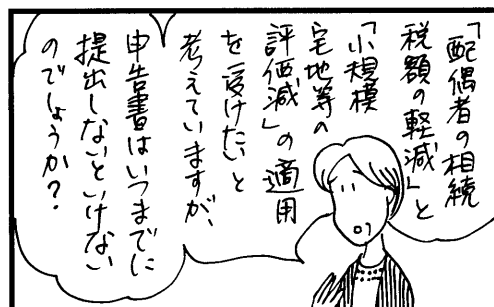 「配偶者の相続
税額の軽減」と
「小規模
宅地等の
評価減」の適用
を受けたいと
考えていますが、
申告書はいつまでに
提出しないといけない
のでしょうか？